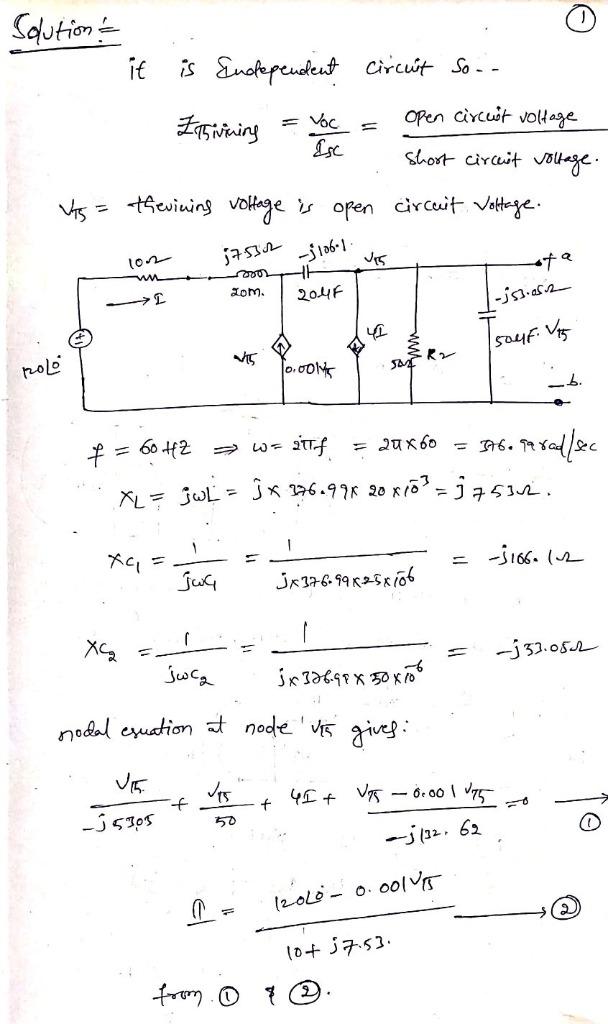 Solution :-
①
it is Independent circuit so - -
ZThivining = Voc / Isc = open circuit voltage / short circuit voltage.
VTh = thevining voltage is open circuit voltage.
10Ω j753Ω -j106.1 VTh + a
→ I 20m. 20μF -j53.05Ω
4I 50μF. VTh
VTh 0.001VTh 50Ω R2
120∠0 - b.
f = 60 HZ ⇒ ω = 2πf = 2π×60 = 376.99 rad/sec
XL = jωL = j × 376.99 × 20 × 10^-3 = j 753Ω.
XC1 = 1 / jωC1 = 1 / j×376.99×25×10^-6 = -j166.1Ω
XC2 = 1 / jωC2 = 1 / j×376.99 × 50×10^-6 = -j33.05Ω
nodal equation at node 'VTh gives:
VTh / -j5305 + VTh / 50 + 4I + VTh - 0.001 VTh / -j132.62 = 0 → ①
I = 120∠0 - 0.001VTh / 10 + j7.53. → ②
from ① & ②.